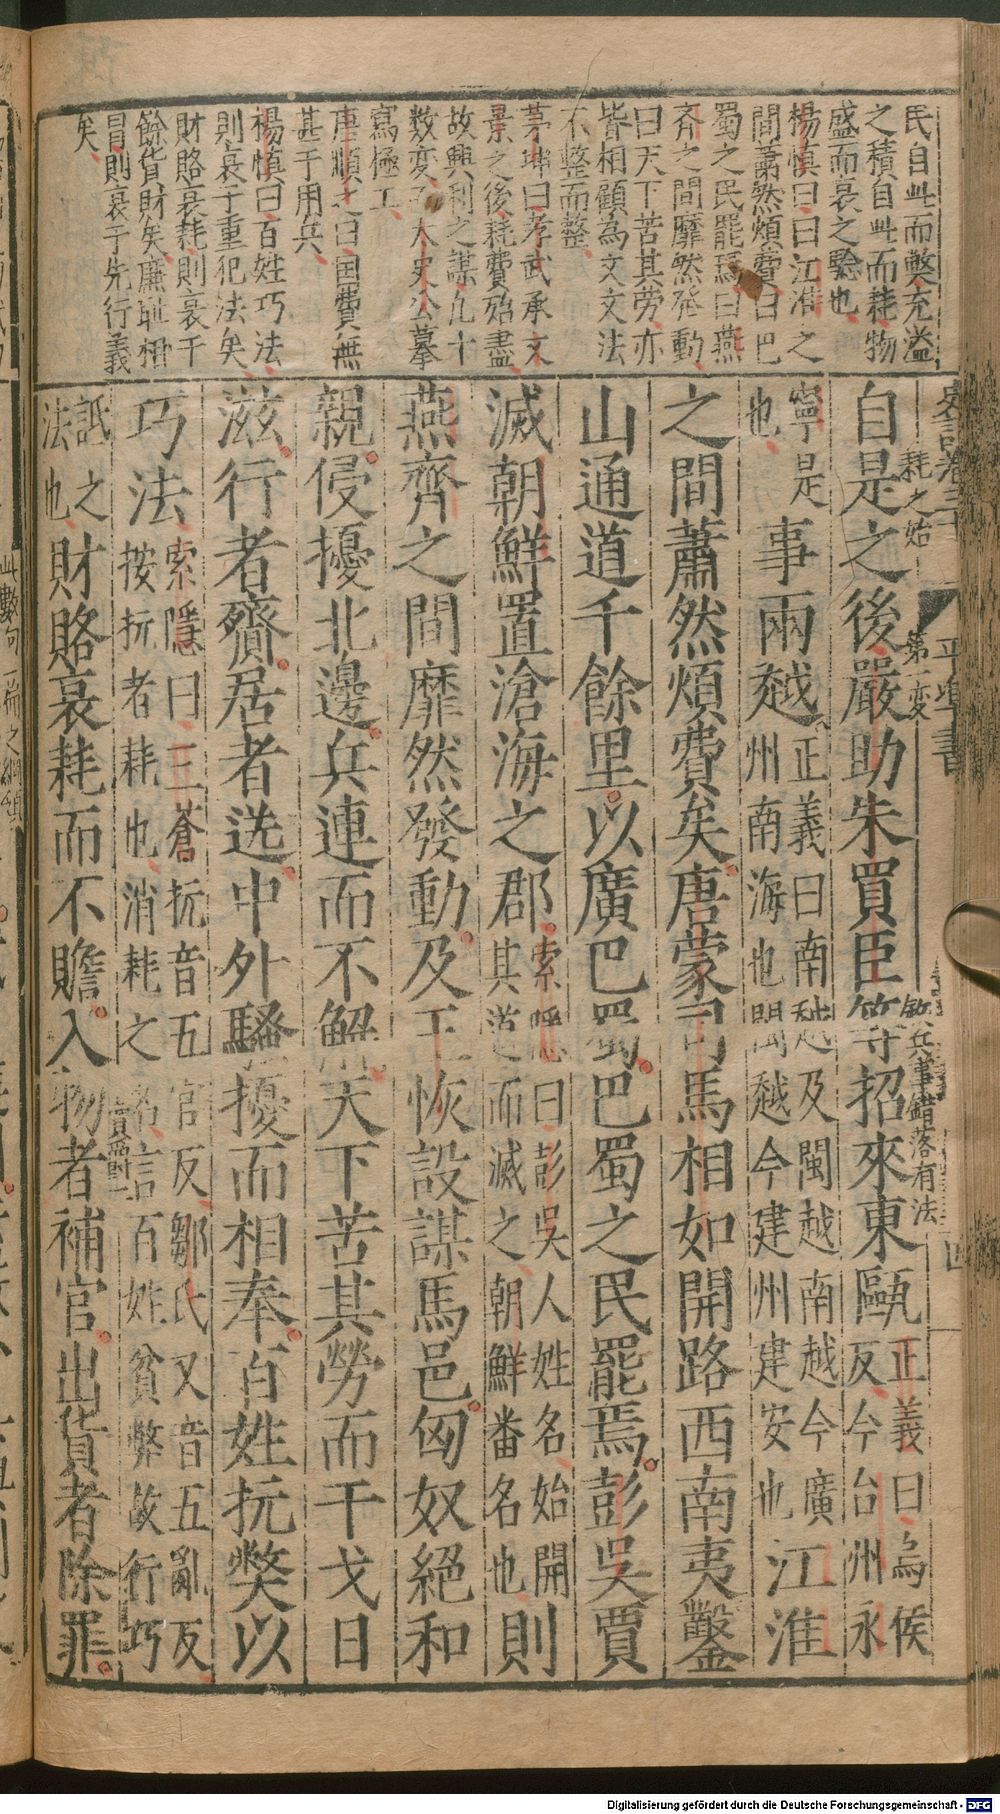 民自此而獘充溢
之積自此而耗物
盛而衰之驗也
楊慎曰曰江淮之
間蕭然煩費曰巴
蜀之民罷焉曰燕
齊之間靡然發動
曰天下苦其勞亦
皆相顧為文文法
不整而整
茅坤曰孝武承文
景之後耗費殆盡
故興利之謀凡十
數變子太史公摹
寫極工
唐順之曰国費無
甚于用兵
楊慎曰百姓巧法
則衰于重犯法矣
財賂衰耗則衰干
餘貨財矣廉耻相
冐則衰于先行義
矣
史記卷三十
平準書
四
耗之始
第一変
敘兵事錯落有法
自是之後嚴助朱買臣等招來東甌正義曰烏侯反今台州永
寧是也事兩越正義曰南越及閩越南越今廣州南海也閩越今建州建安也江淮
之間蕭然煩費矣唐蒙司馬相如開路西南夷鑿
山通道千餘里以廣巴蜀巴蜀之民罷焉彭吳賈
滅朝鮮置滄海之郡索隱曰彭吳人姓名始開其道而滅之朝鮮番名也則
燕齊之間靡然發動及王恢設謀馬邑匈奴絕和
親侵擾北邊兵連而不解天下苦其勞而干戈日
滋行者齎居者送中外騷擾而相奉百姓抏獘以
巧法索隱曰三蒼抏音五官反鄒氏又音五亂反按抏者耗也消耗之名言百姓貧弊故行巧
詆之法也財賂衰耗而不贍入物者補官出貨者除罪
此數句一篇之綱領
賣爵
Digitalisierung gefördert durch die Deutsche Forschungsgemeinschaft - DFG